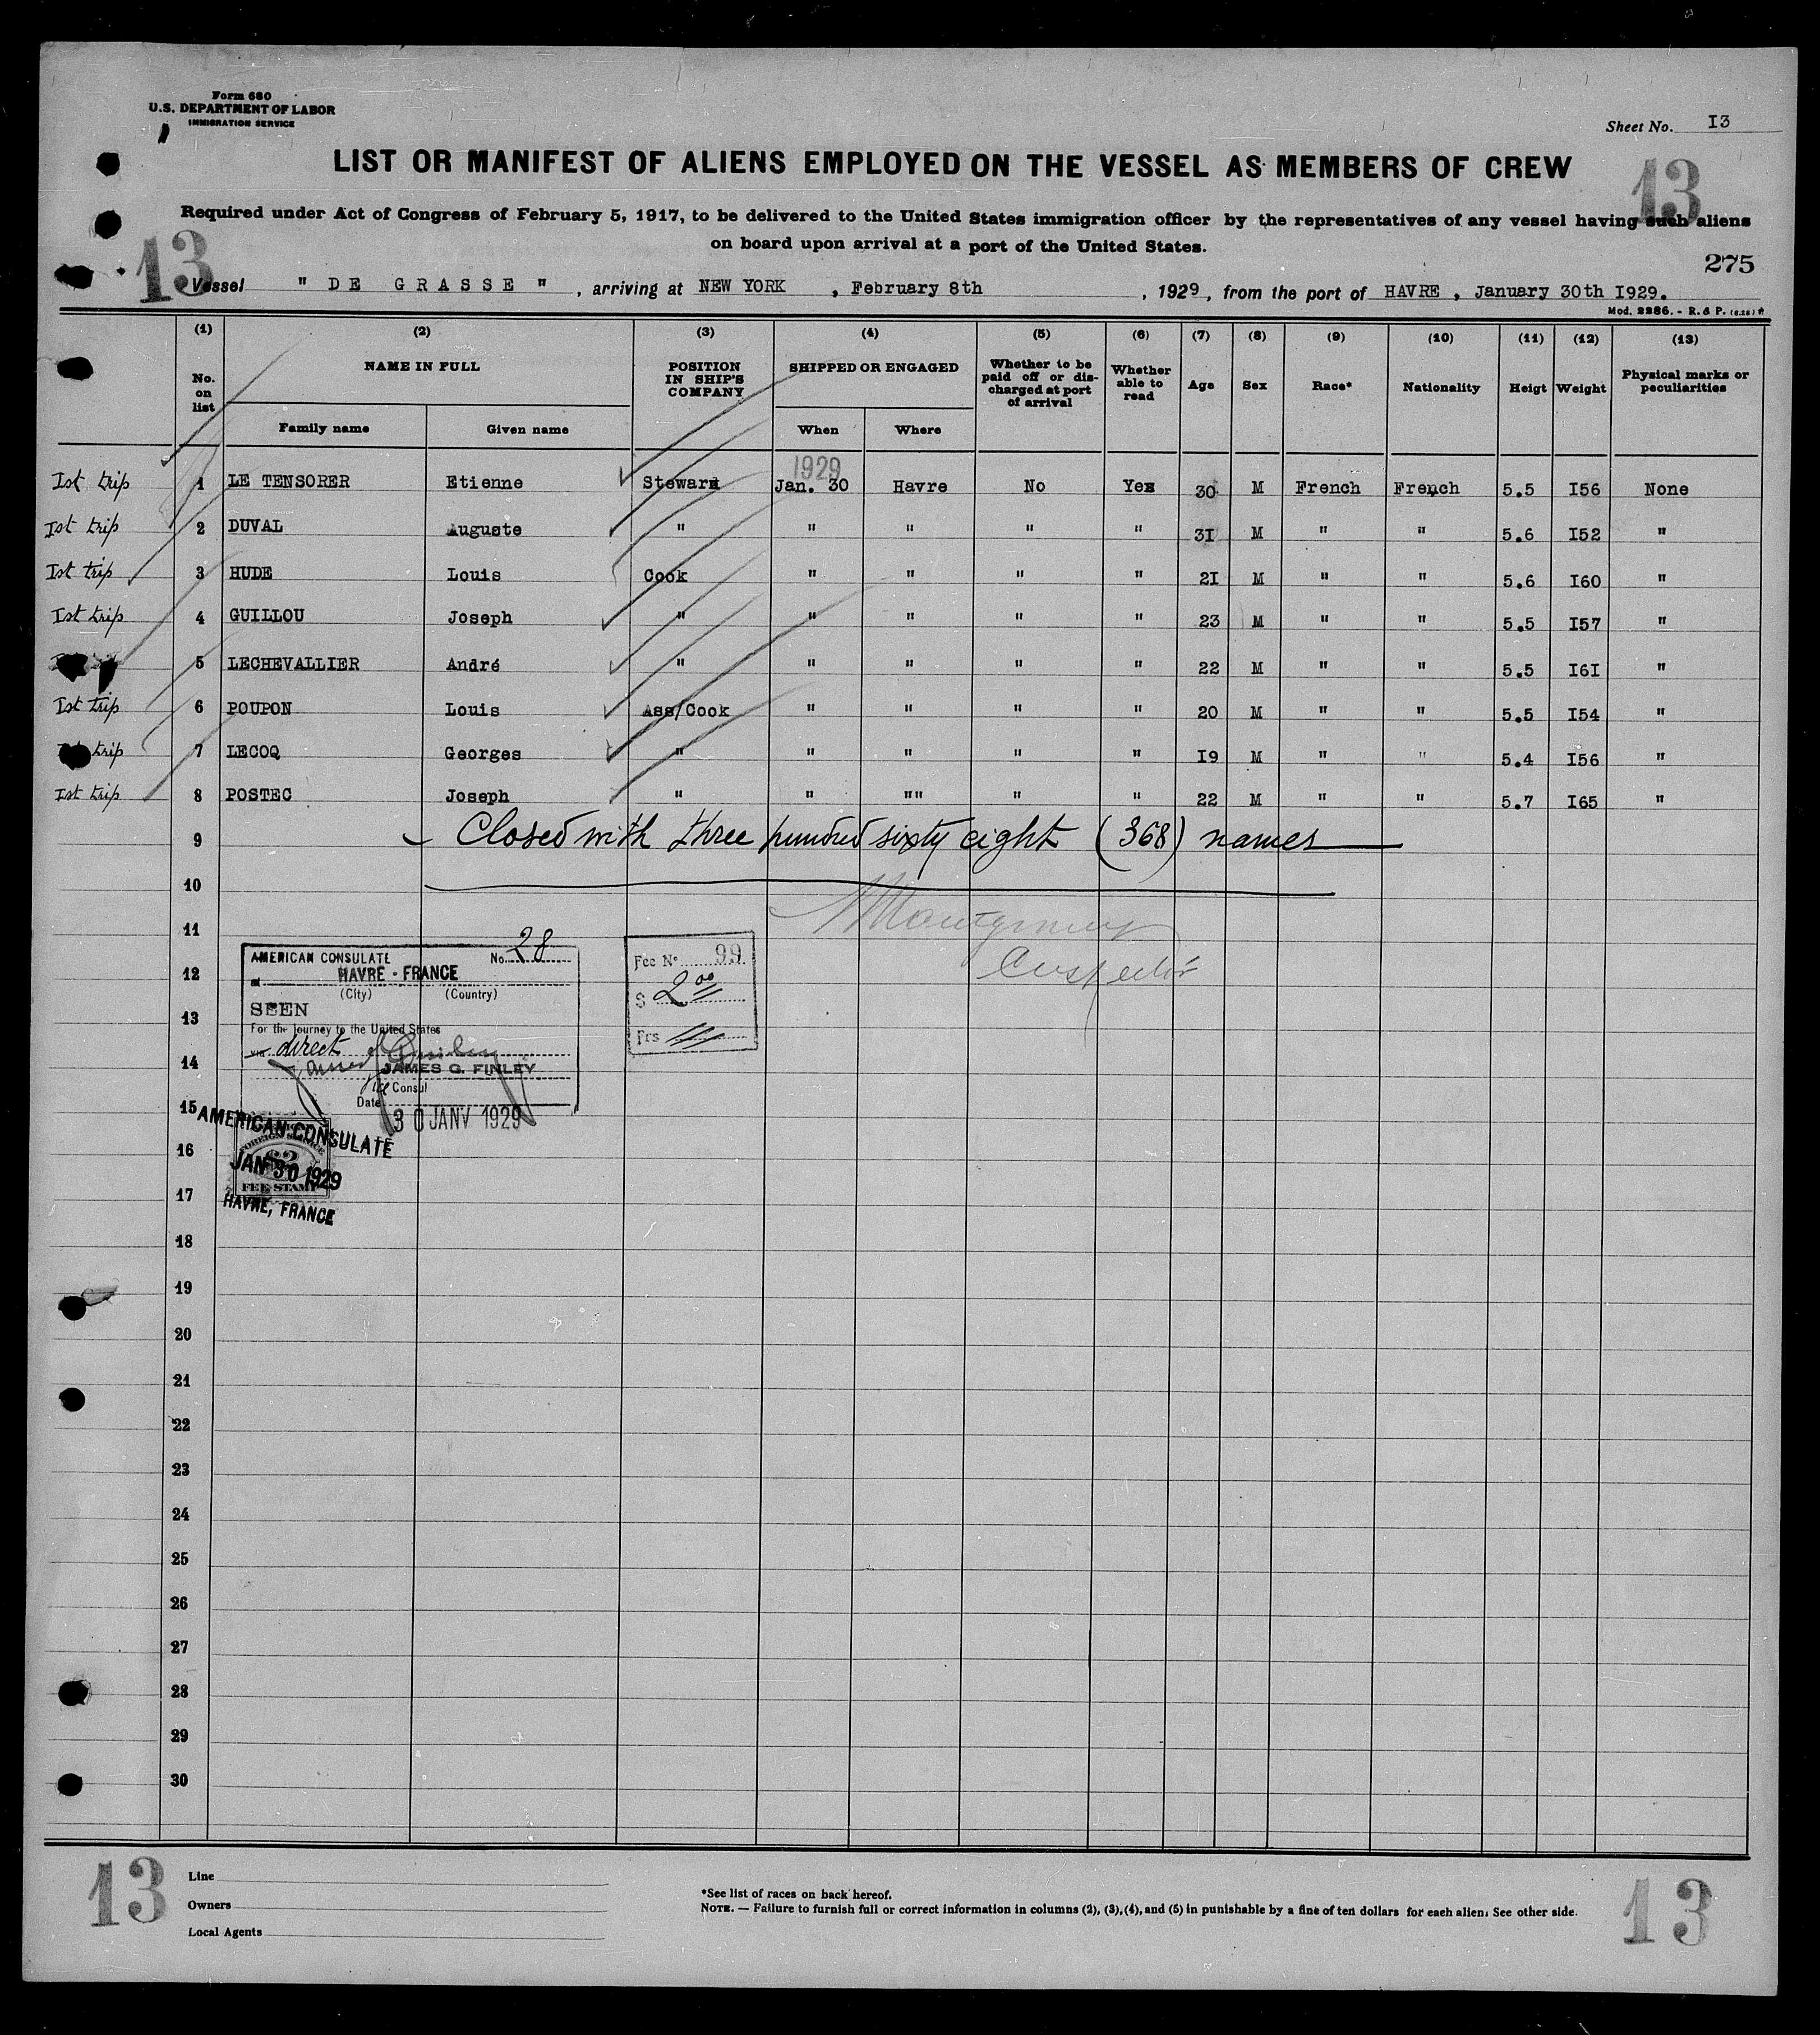 Form 680
U.S. DEPARTMENT OF LABOR
IMMIGRATION SERVICE
Sheet No. I3
LIST OR MANIFEST OF ALIENS EMPLOYED ON THE VESSEL AS MEMBERS OF CREW
13
Required under Act of Congress of February 5, 1917, to be delivered to the United States immigration officer by the representatives of any vessel having such aliens
on board upon arrival at a port of the United States.
275
13
Vessel " DE GRASSE " , arriving at NEW YORK , February 8th , 1929, from the port of HAVRE , January 30th I929.
Mod. 2286. - R. & P. (6.28) *
(1) (2) (3) (4) (5) (6) (7) (8) (9) (10) (11) (12) (13)
No. on list NAME IN FULL POSITION IN SHIP'S COMPANY SHIPPED OR ENGAGED Whether to be paid off or discharged at port of arrival Whether able to read Age Sex Race* Nationality Heigt Weight Physical marks or peculiarities
Family name Given name When Where
1929
Ist trip 1 LE TENSORER Etienne Steward Jan. 30 Havre No Yes 30 M French French 5.5 I56 None
Ist trip 2 DUVAL Auguste " " " " " 3I M " " 5.6 I52 "
Ist trip 3 HUDE Louis Cook " " " " 2I M " " 5.6 I60 "
Ist trip 4 GUILLOU Joseph " " " " " 23 M " " 5.5 I57 "
5 LECHEVALLIER André " " " " " 22 M " " 5.5 I6I "
Ist trip 6 POUPON Louis Ass/Cook " " " " 20 M " " 5.5 I54 "
trip 7 LECOQ Georges " " " " " I9 M " " 5.4 I56 "
Ist trip 8 POSTEC Joseph " " "" " " 22 M " " 5.7 I65 "
9 Closed with three hundred sixty eight (368) names
10
11 Montgomery
Inspector
AMERICAN CONSULATE No. 28
at HAVRE - FRANCE
(City) (Country)
SEEN
For the journey to the United States
via direct
James G. Finley
JAMES G. FINLEY
Vice Consul
Date 30 JANV 1929
Fee No. 99
$ 2.00
Frs
12
13
14
15
AMERICAN CONSULATE
FOREIGN SERVICE
$2
JAN 30 1929
FEE STAMP
HAVRE, FRANCE
16
17
18
19
20
21
22
23
24
25
26
27
28
29
30
13
Line
Owners
Local Agents
*See list of races on back hereof.
NOTE. — Failure to furnish full or correct information in columns (2), (3), (4), and (5) in punishable by a fine of ten dollars for each alien. See other side.
13